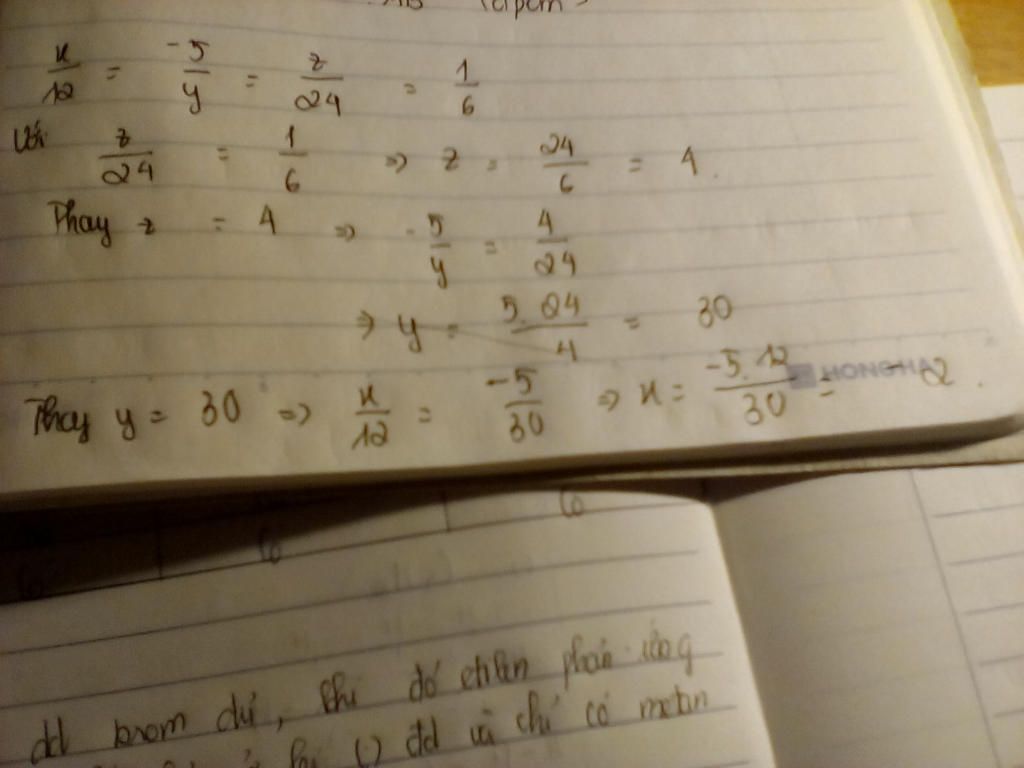 x/12 = -5/y = z/24 = 1/6
Với z/24 = 1/6 => z = 24/6 = 4.
Thay z = 4 => -5/y = 4/24
=> y = 5.24/4 = 30
HONG HA
Thay y = 30 => x/12 = -5/30 => x = -5.12/30 = -2.
dd brom dư, khi đó etilen phản ứng
dd và chỉ có metan